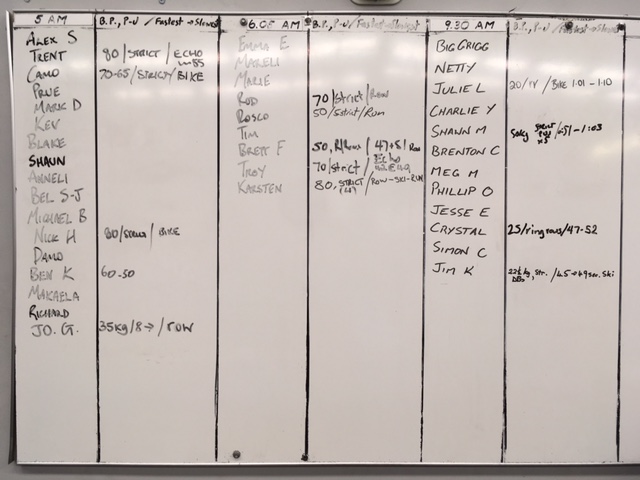 5 AM B.P., P-U / Fastest → Slowest 6.05 AM B.P., P-U / Fastest → Slowest 9.30 AM B.P., P-U / Fastest → Slowest
ALEX S
TRENT 80 / STRICT / ECHO
CAMO 70-65 / STRICT / BIKE
PRUE
MARK D
KEV
BLAKE
SHAUN
ANNELI
BEL S-J
MICHAEL B
NICK H 80 / / BIKE
DAMO
BEN K 60-50
MAKAELA
RICHARD
JO. G. 35KG / 8 → / ROW
EMMA E
MARELI
MARIE
ROD 70 / Strict / Row
ROSCO 50 / Strict / Run
TIM
BRETT F 50, R/Rows / 47 → 51 Row
TROY 70 / Strict / Echo
KARSTEN 80, STRICT / ROW-SKI-RUN
BIG GRIGG
NETTY
JULIE L 20 / / BIKE 1.01 - 1.10
CHARLIE Y
SHAWN M 50kg x5 / 51 - 1:03
BRENTON C
MEG M
PHILLIP O
JESSE E
CRYSTAL 25 / ring rows / 47-52
SIMON C
JIM K 22½ kg DBs, Str. / 45 → 49 sec. Ski